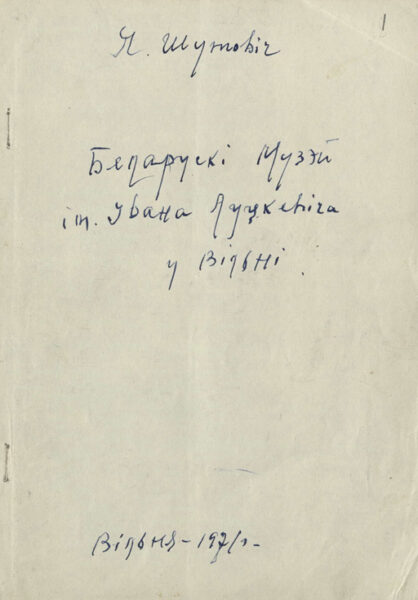 1
Я. Шутовіч
Беларускі Музэй
ім. Івана Луцкевіча
у Вільні.
Вільня - 197